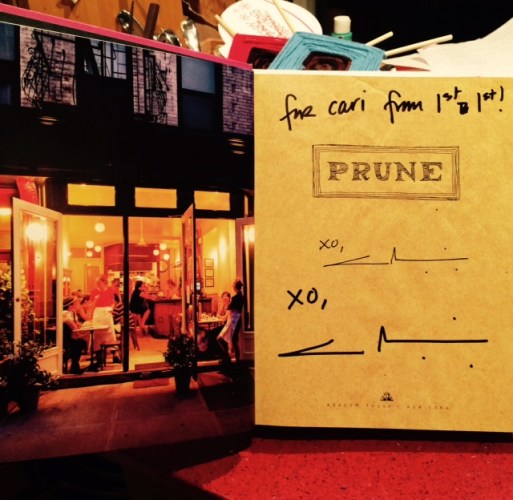 for cari from 1st & 1st!
PRUNE
XO,
XO,
RANDOM HOUSE • NEW YORK